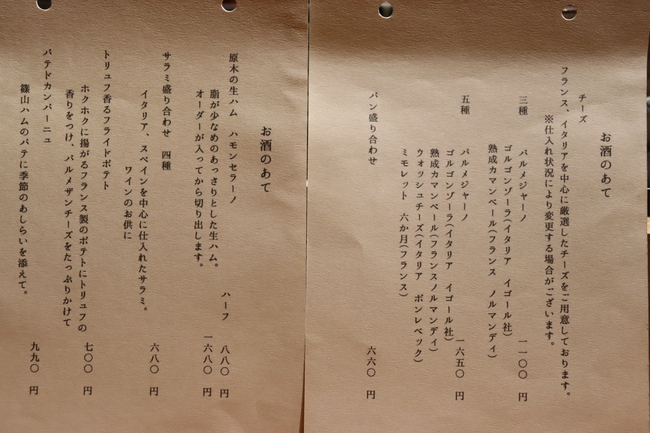 お酒のあて
チーズ
フランス、イタリアを中心に厳選したチーズをご用意しております。
※仕入れ状況により変更する場合がございます。
三種 パルメジャーノ
ゴルゴンゾーラ(イタリア イゴール社)
熟成カマンベール(フランス ノルマンディ) 一一〇〇 円
五種 パルメジャーノ
ゴルゴンゾーラ(イタリア イゴール社)
熟成カマンベール(フランスノルマンディ)
ウォッシュチーズ(イタリア ポンレベック)
ミモレット 六か月(フランス) 一六五〇 円
パン盛り合わせ 六六〇 円
お酒のあて
原木の生ハム ハモンセラーノ ハーフ 八八〇 円
脂が少なめのあっさりとした生ハム。 一六八〇 円
オーダーが入ってから切り出します。
サラミ盛り合わせ 四種 六八〇 円
イタリア、スペインを中心に仕入れたサラミ。
ワインのお供に
トリュフ香るフライドポテト 七〇〇 円
ホクホクに揚がるフランス製のポテトにトリュフの
香りをつけ、パルメザンチーズをたっぷりかけて
パテドカンパーニュ 九九〇 円
篠山ハムのパテに季節のあしらいを添えて。